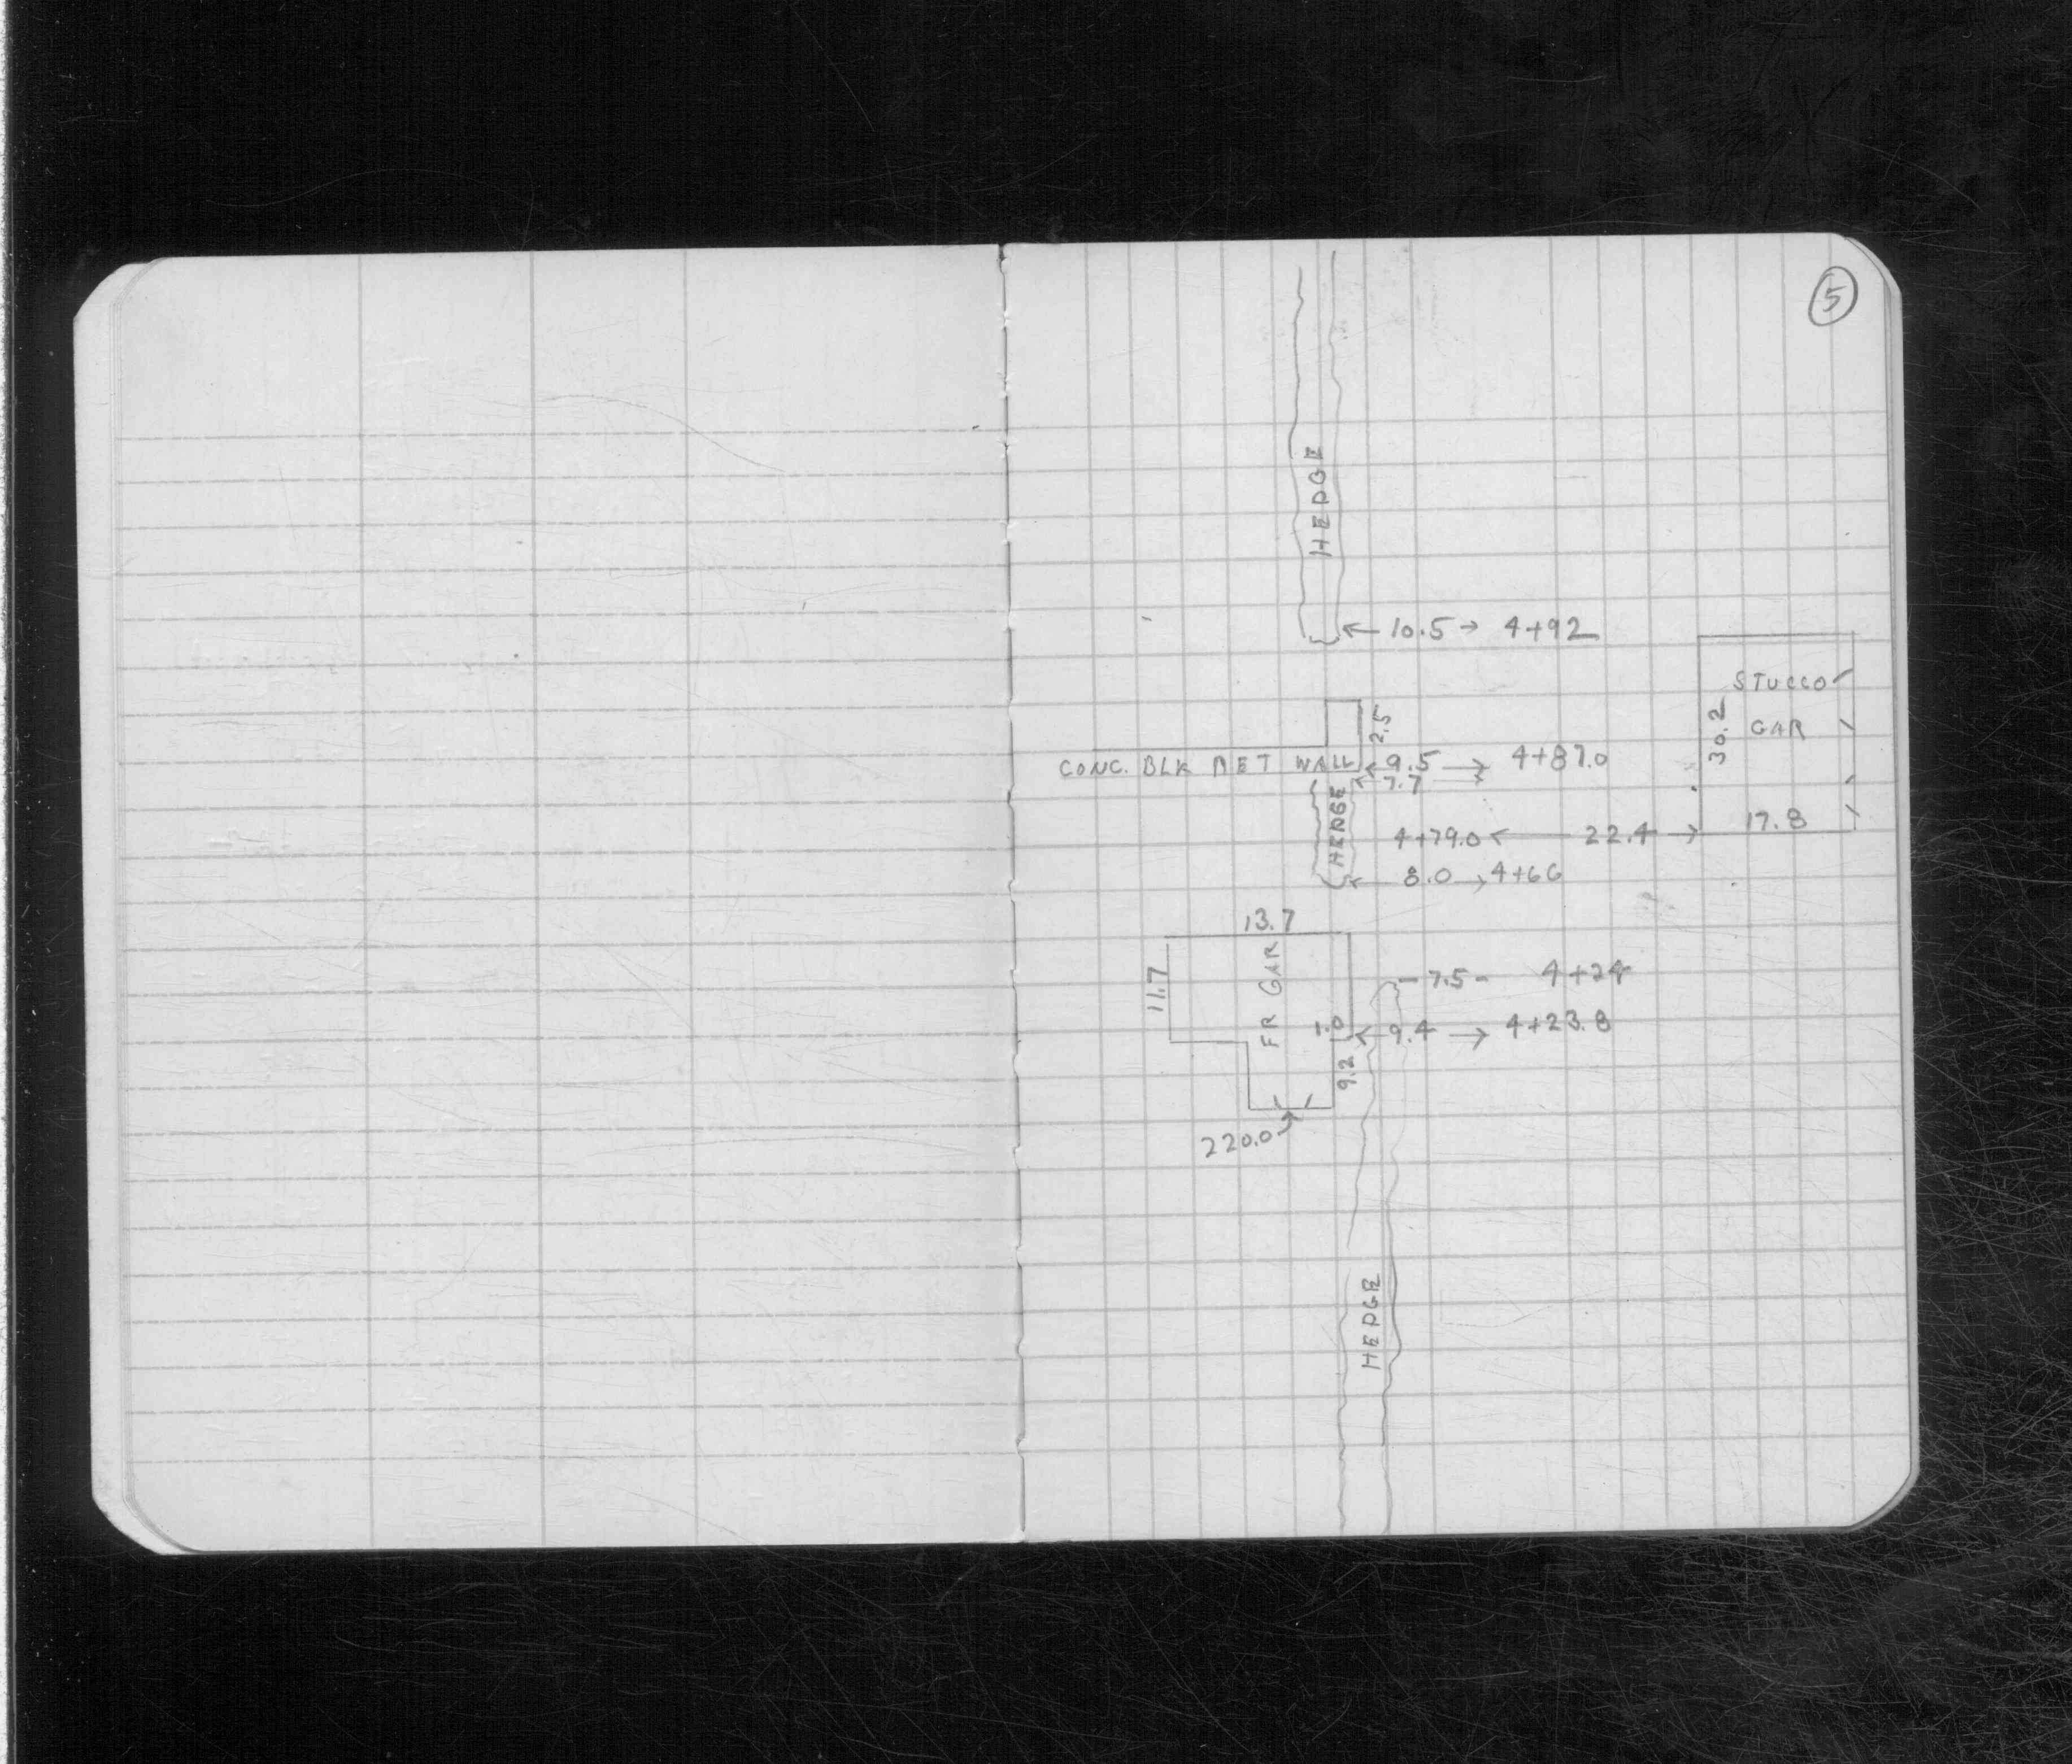 5
HEDGE
10.5 4+92
STUCCO
GAR
30.2
17.8
2.5
CONC. BLK RET WALL 9.5 4+87.0
7.7
HEDGE
4+79.0 22.4
8.0 4+66
13.7
11.7
FR GAR
7.5 4+24
1.0 9.4 4+23.8
9.2
220.0
HEDGE